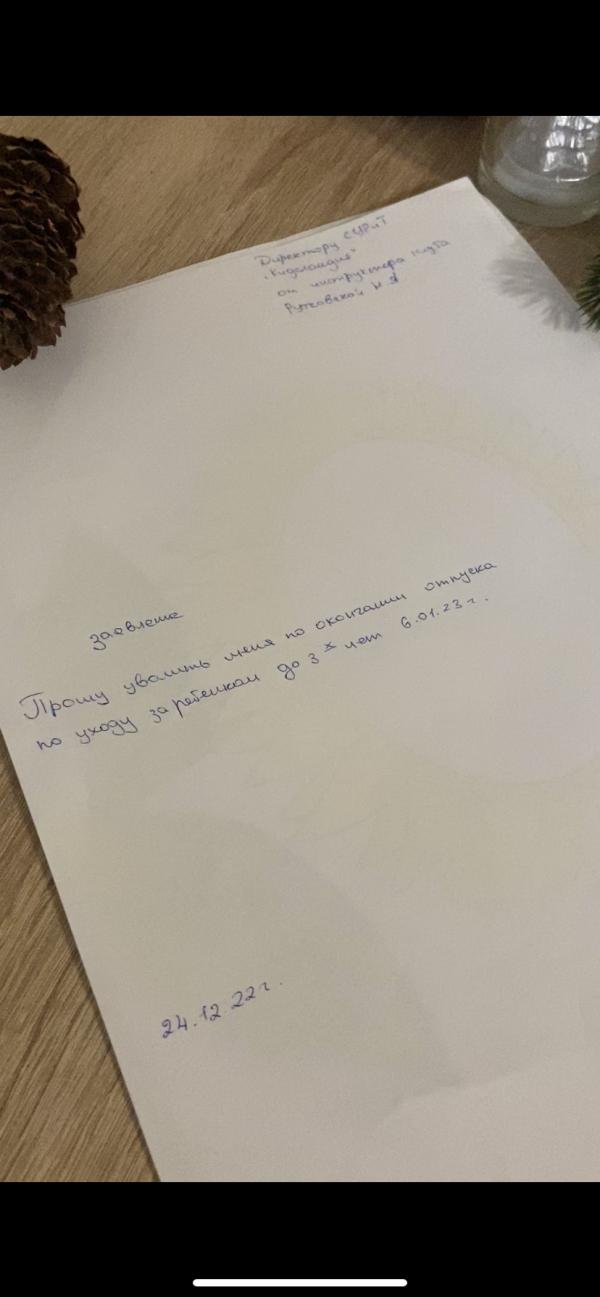 Директору СЦРиТ
"Кидсландия"
от инструктора
Рутковской И Я
заявление
Прошу уволить меня по окончании отпуска
по уходу за ребенком до 3х лет 6.01.23г.
24.12.22г.